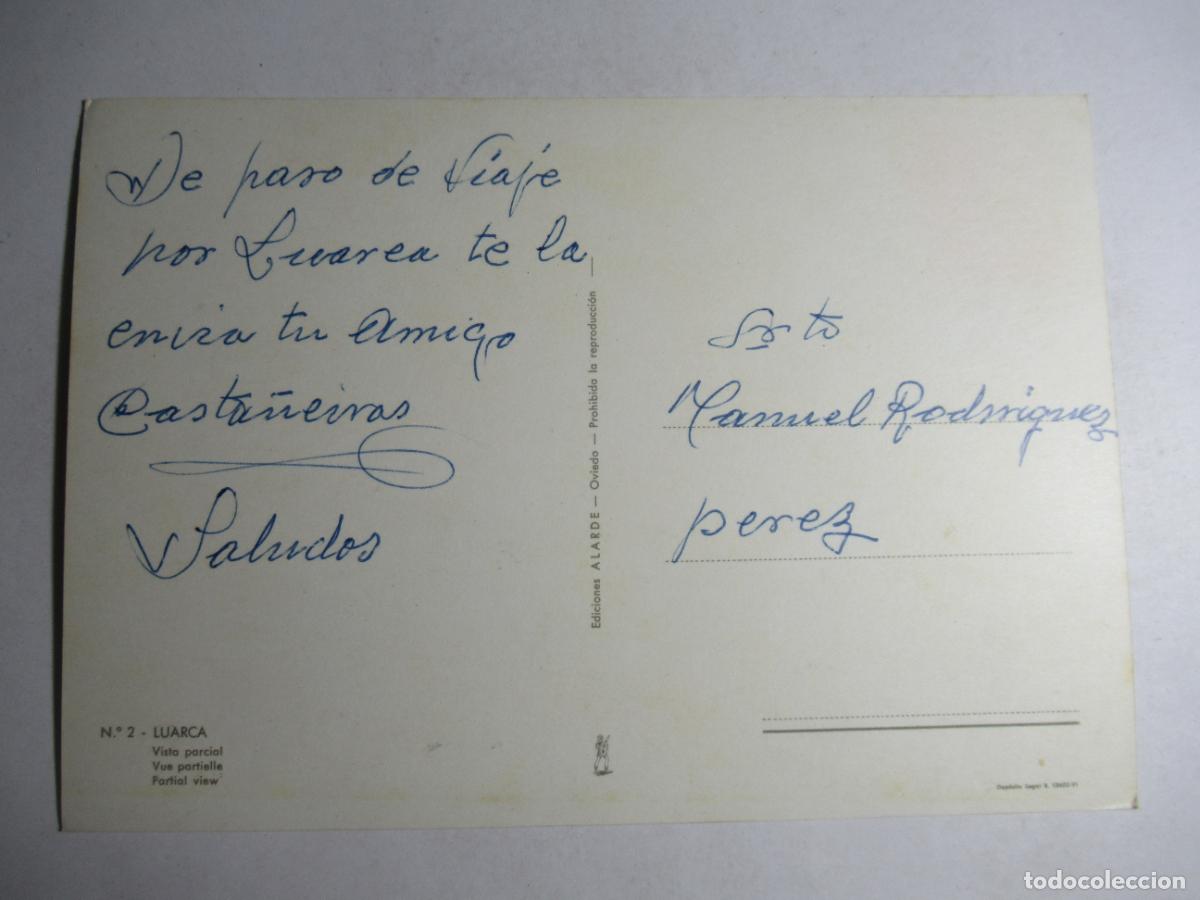 De paso de Viaje
por Luarca te la
envia tu Amigo
Castañeiras
Saludos
Sr to
Manuel Rodriguez
perez
Ediciones ALARDE — Oviedo — Prohibida la reproducción —
N.º 2 - LUARCA
Vista parcial
Vue partielle
Partial view
Depósito Legal
todocoleccion